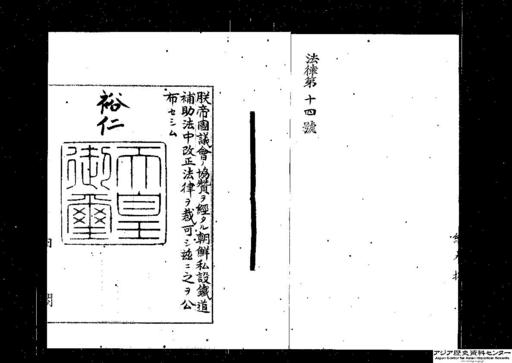 法律第十四號
朕帝國議會ノ協贊ヲ經タル朝鮮私設鐵道
補助法中改正法律ヲ裁可シ茲ニ之ヲ公
布セシム
裕仁
天皇
御璽
アジア歴史資料センター
Japan Center for Asian Historical Records